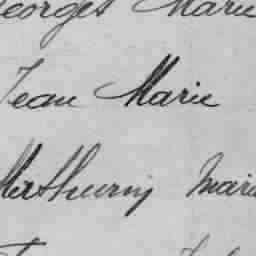 Georges Marie
Jean Marie
Mathurin Marie